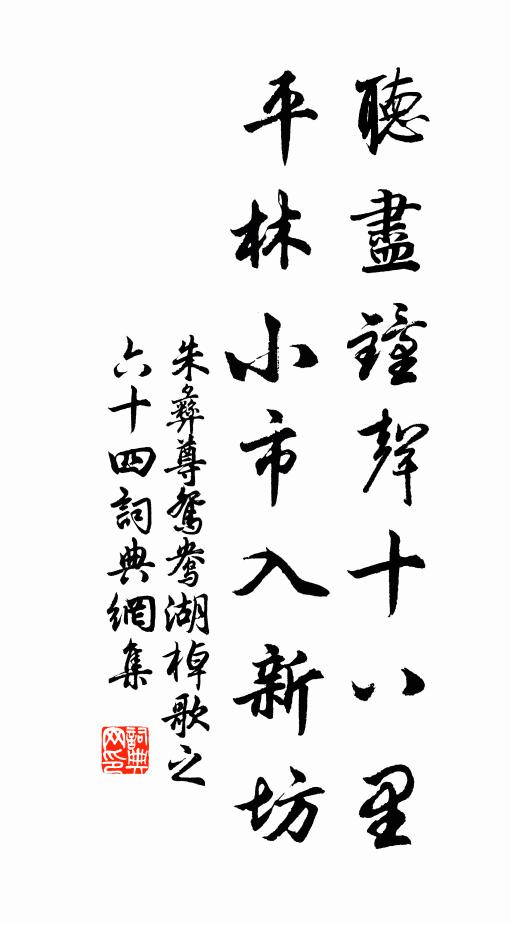 聽盡鐘聲十八里
平林小市入新坊
朱彝尊鴛鴦湖棹歌之
六十四詞典網集
詞典网印